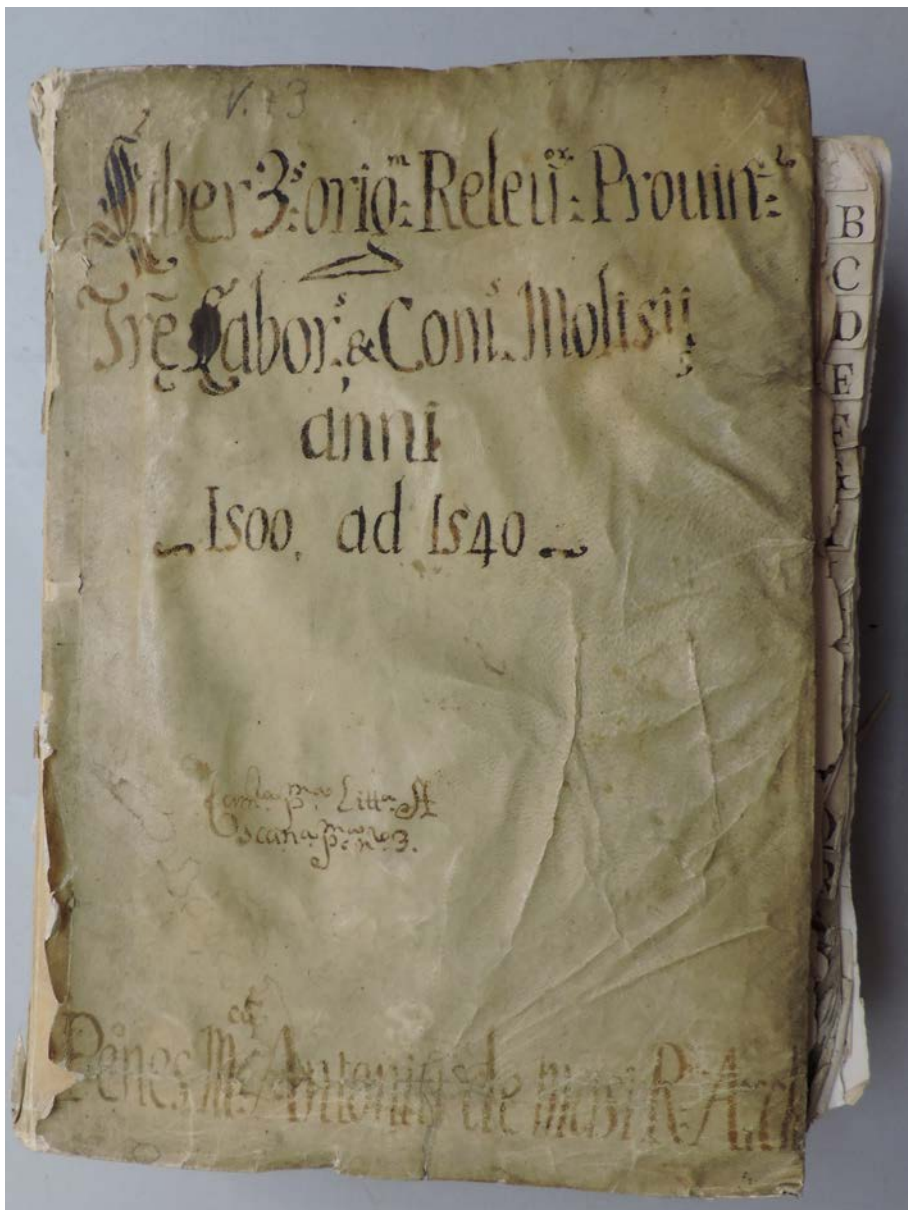 V. 73
Liber 3.s orig.m Releu.or Prouin.
Tre Labor.s & Com.s Molisij
anni
1500. ad 1540
p.ma Litt.a A
Scan.a p.ma n.o 3.
Penes M. Antoniu de Masi R. Arch
B
C
D
E
F